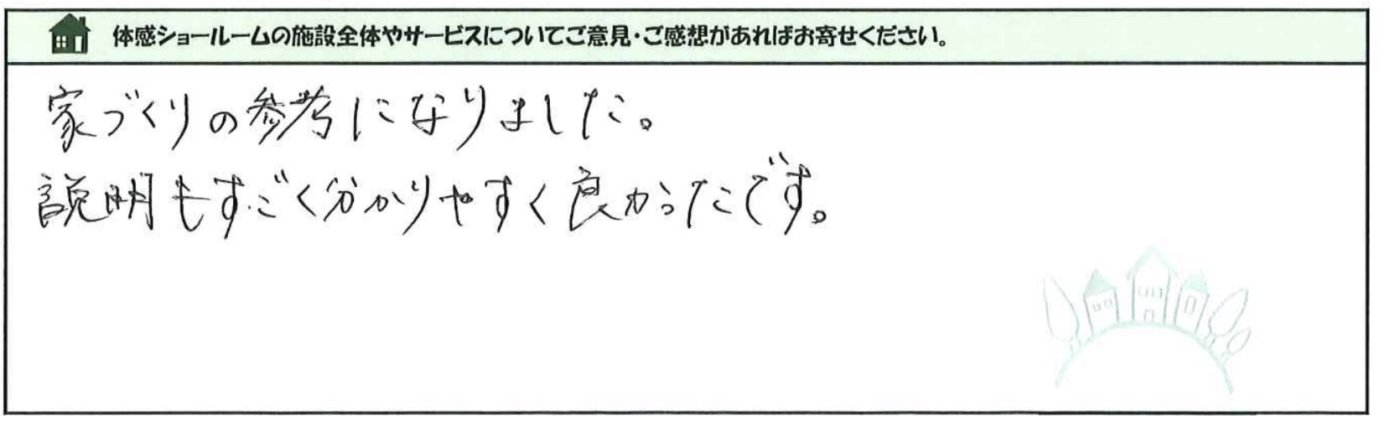 体感ショールームの施設全体やサービスについてご意見・ご感想があればお寄せください。
家づくりの参考になりました。
説明もすごく分かりやすく良かったです。